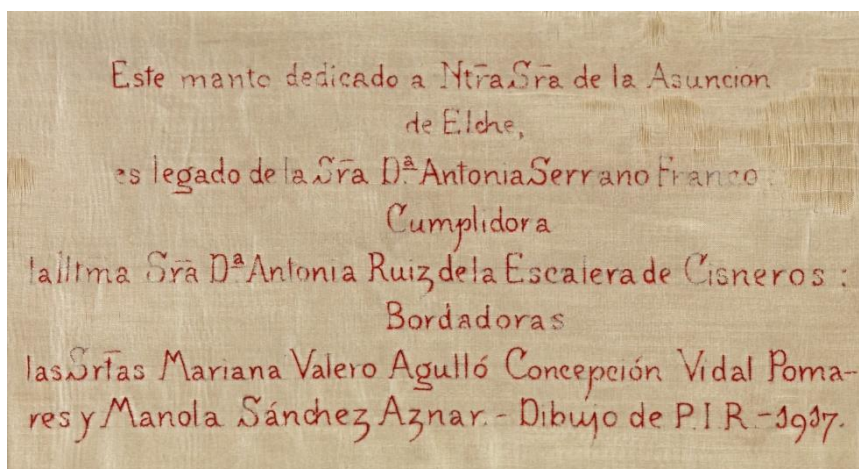 Este manto dedicado a Ntra Sra de la Asunción
de Elche,
es legado de la Sra D.ª Antonia Serrano Franco:
Cumplidora
la Iltma Sra Dª Antonia Ruiz de la Escalera de Cisneros:
Bordadoras
las Srtas Mariana Valero Agulló Concepción Vidal Poma-
res y Manola Sánchez Aznar.- Dibujo de P.I.R.-1917.